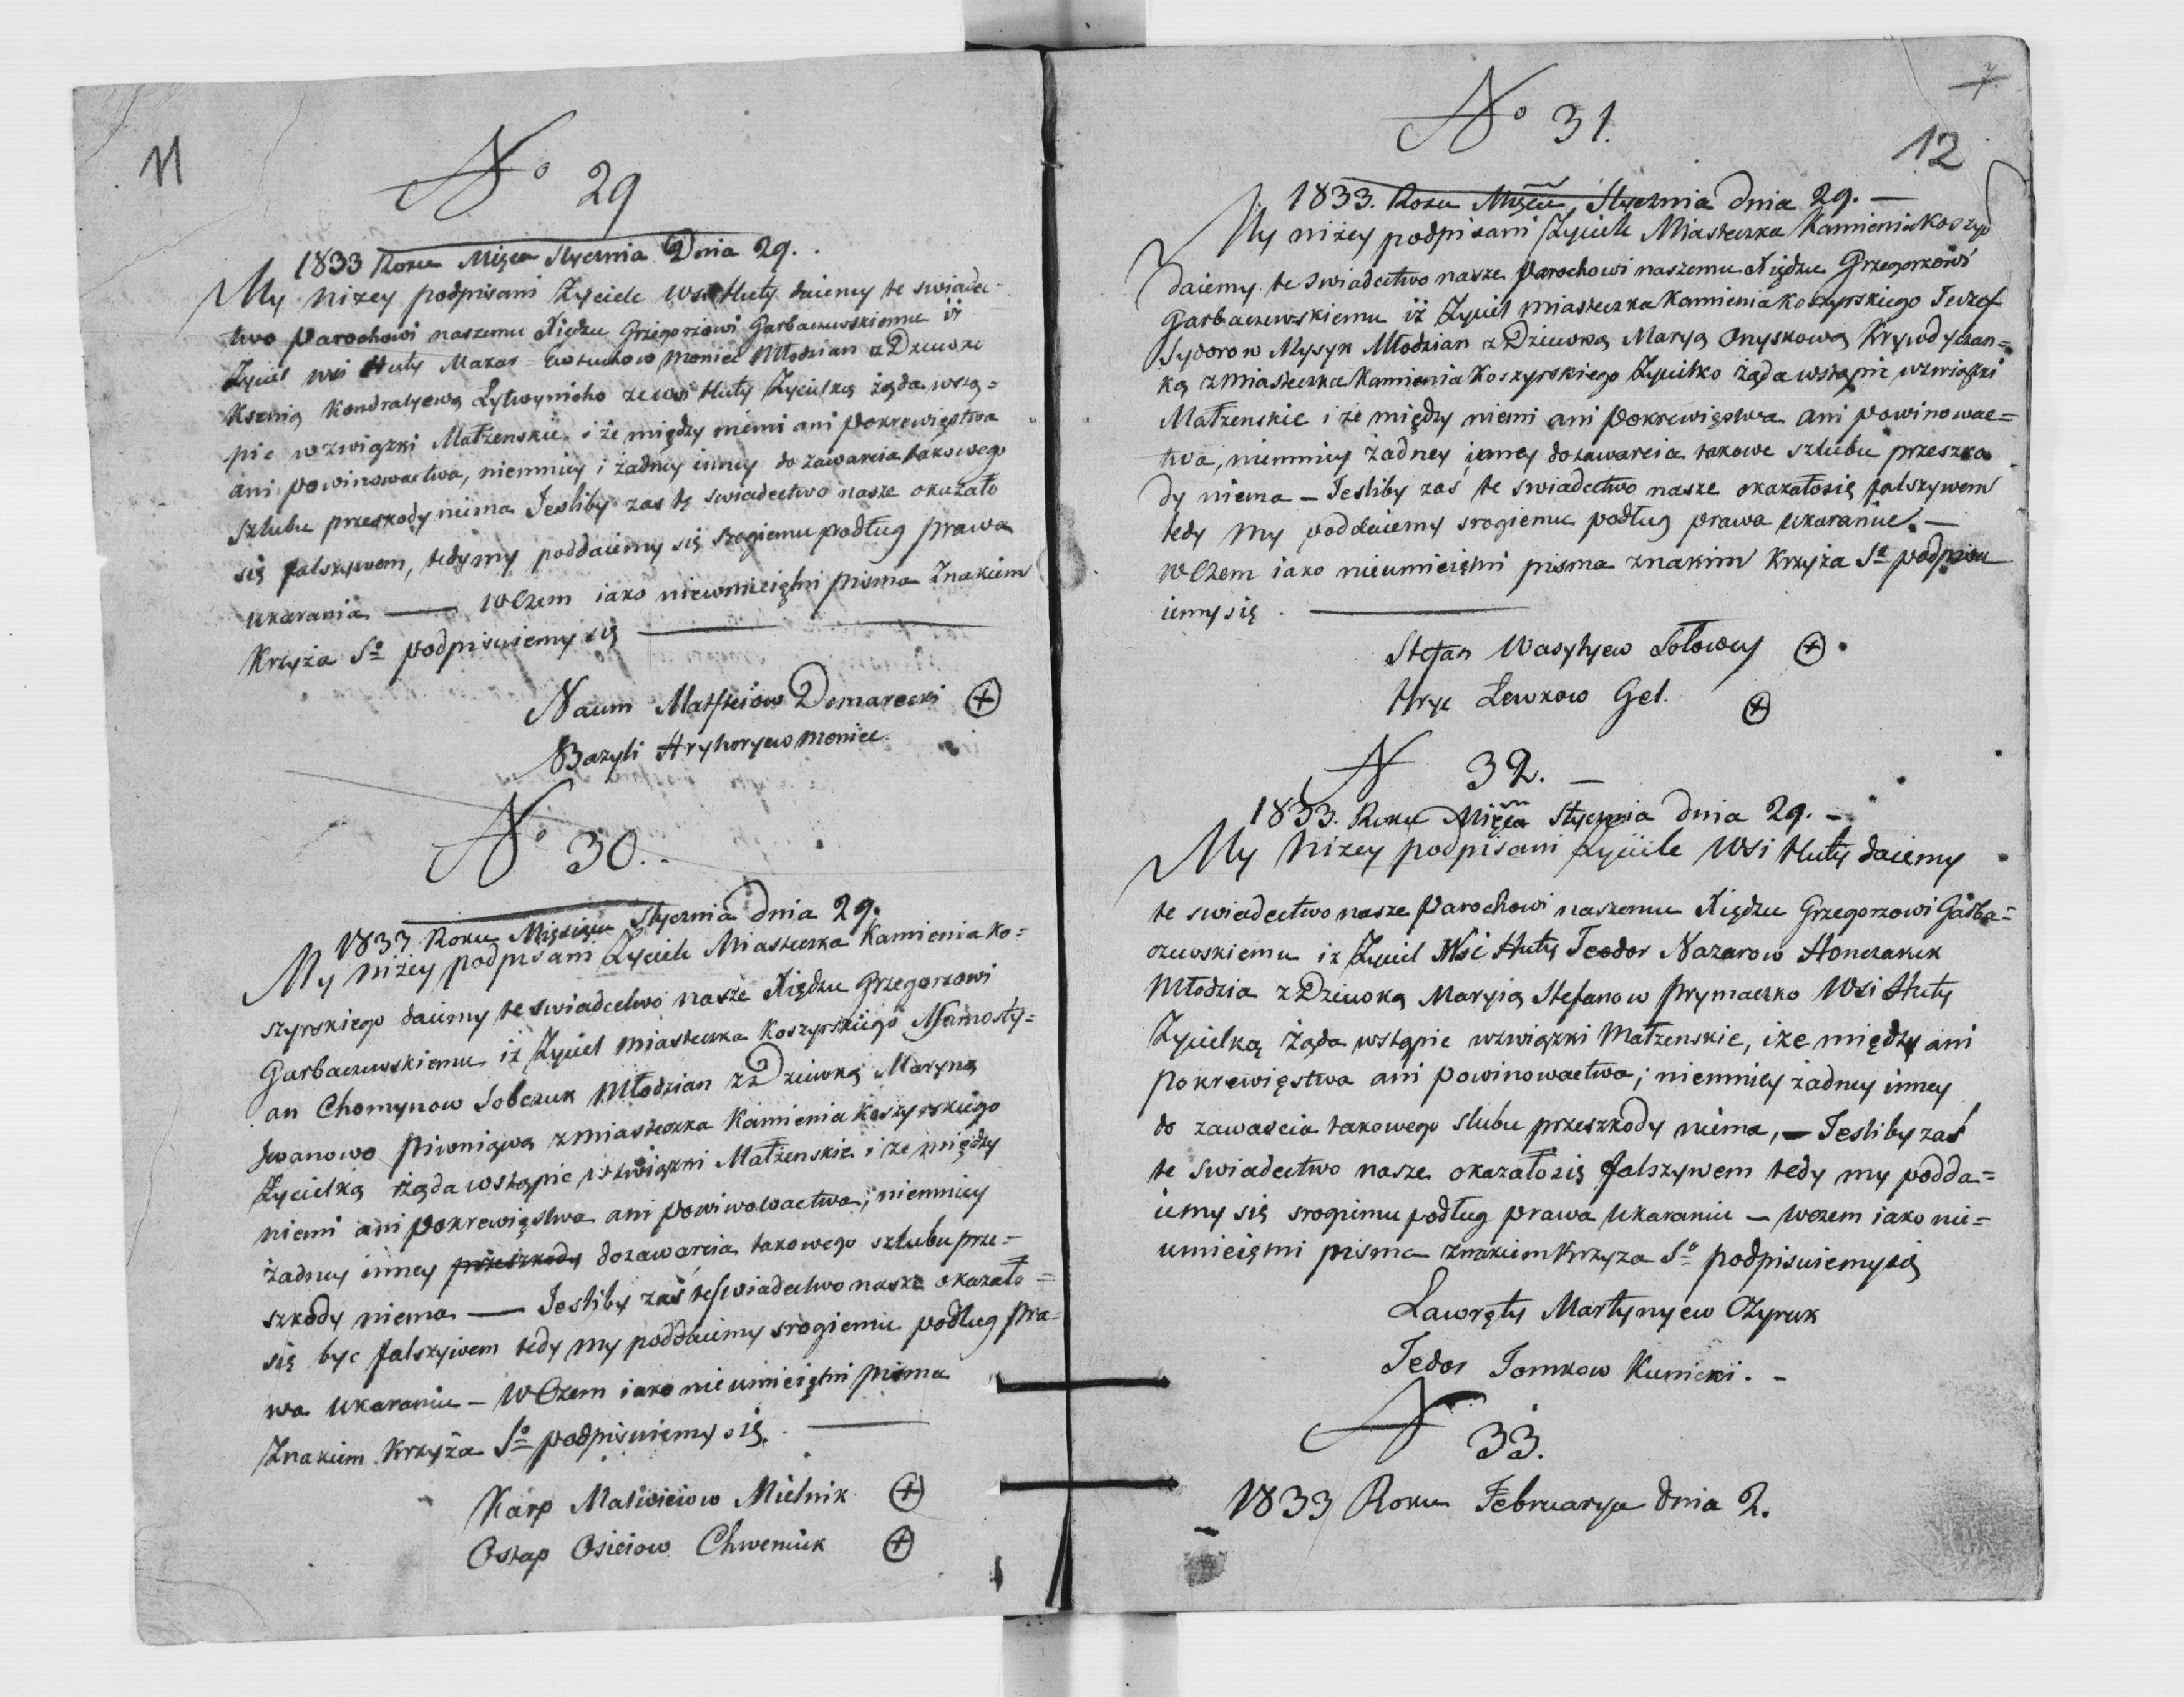 11
No 29
1833 Roku Mięca Stycznia Dnia 29.
My niżey podpisani Życiele Wsi Huty daiemy te swiadec-
two Parochowi naszemu Xiędzu Grzegorzowi Garbaczewskiemu iż
Życiel wsi Huty Makar Moniec Młodzian z Dziewko
Ksenią Kondratyewą Lytwynicho ze wsi Huty Życielką żąda wstą=
pic w związki Małzenskie i że między niemi ani Pokrewięstwa
ani powinowactwa, niemniey i żadney inney do zawarcia takowego
Szlubu przeskody niema Jesliby zas te swiadectwo nasze okazało
się falszywem, tedy my poddaiemy się srogiemu podług prawa
ukarania — W Czem iako nieumieiętni pisma Znakiem
Krzyża So podpisuiemy się —
Naum Matfieiow Demarecki +
Bazyli Hryhoryew Moniec
No 30.
1833. Roku Miesięcu Stycznia dnia 29.
My niżey podpisani Życiele Miasteczka Kamienia Ko=
szyrskiego daiemy te swiadectwo nasze Xiędzu Grzegorzowi
Garbaczewskiemu iż Życiel miasteczka Koszyrskiego Namosty=
an Chomynow Sobczuk Młodzian z Dziewką Maryną
Iwanowo Piwniową z miasteczka Kamienia Koszyrskiego
Życielką rżąda wstąpic w związki Małżenskie i że między
niemi ani Pokrewięstwa ani powiwowactwa, niemniey
żadney inney przeszkody do zawarcia takowego szlubu prze=
szkody niema — Jesliby zaś te swiadectwo nasze okazało=
się byc falszywem tedy my poddaiemy srogiemu podług pra=
wa ukaraniu — W Czem iako nie umieiętni pisma
Znakiem Krzyża So podpisuiemy się. —
Karp Matwieiow Mielnik +
Ostap Osieiow Chweniuk +
7
12
No 31.
1833. Roku Mięca, Stycznia dnia 29. —
My niżey podpisani Życiele Miasteczka Kamienia Koszyr
daiemy te swiadectwo nasze Parochowi naszemu Xiędzu Grzegorzowi
Garbaczewskiemu iż Życiel miasteczka Kamienia Koszyrskiego Jeozef
Sydorow Mysyk Młodzian z Dziewką Maryą Onyskową Krywdyczan=
ką z miasteczka Kamienia Koszyrskiego Życielko żąda wstąpic w związki
Małżenskie i że między niemi ani Pokrewięstwa ani powinowac=
twa, niemniey żadney inney do zawarcia takowe szlubu przeszko
dy niema — Jesliby zaś te swiadectwo nasze okazałosię falszywem
tedy my poddaiemy srogiemu podług prawa ukaraniu. —
W Czem iako nieumieiętni pisma znakim Krzyża So podpisu
iemy się. —
Stefan Wasylyew Sołowey +
Hryc Lewkow Gel. +
N 32. —
1833. Roku Mięca Stycznia dnia 29. —
My Niżey podpisani Życiele Wsi Huty daiemy
te swiadectwo nasze Parochowi naszemu Xiędzu Grzegorzowi Garba=
czewskiemu iz Życiel Wsi Huty Teodor Nazarow Honczaruk
Młodzia z Dziewką Maryią Stefanow Prymaczko Wsi Huty
Życielką Żąda wstąpic w związki Małzenskie, iże między ani
pokrewięstwa ani powinowactwa, niemniey żadney inney
do zawarcia takowego slubu przeszkody niema, — Jesliby zaś
te swiadectwo nasze okazałosię falszywem tedy my podda=
iemy się srogiemu podług prawa Ukaraniu — wczem iako nie=
umieiętni pisma znakiem Krzyza So podpisuiemysię
Lawręty Martynyew Ożyruk
Fedor Tomkow Kunicki. —
N 33.
1833 Roku Februarya dnia 2.